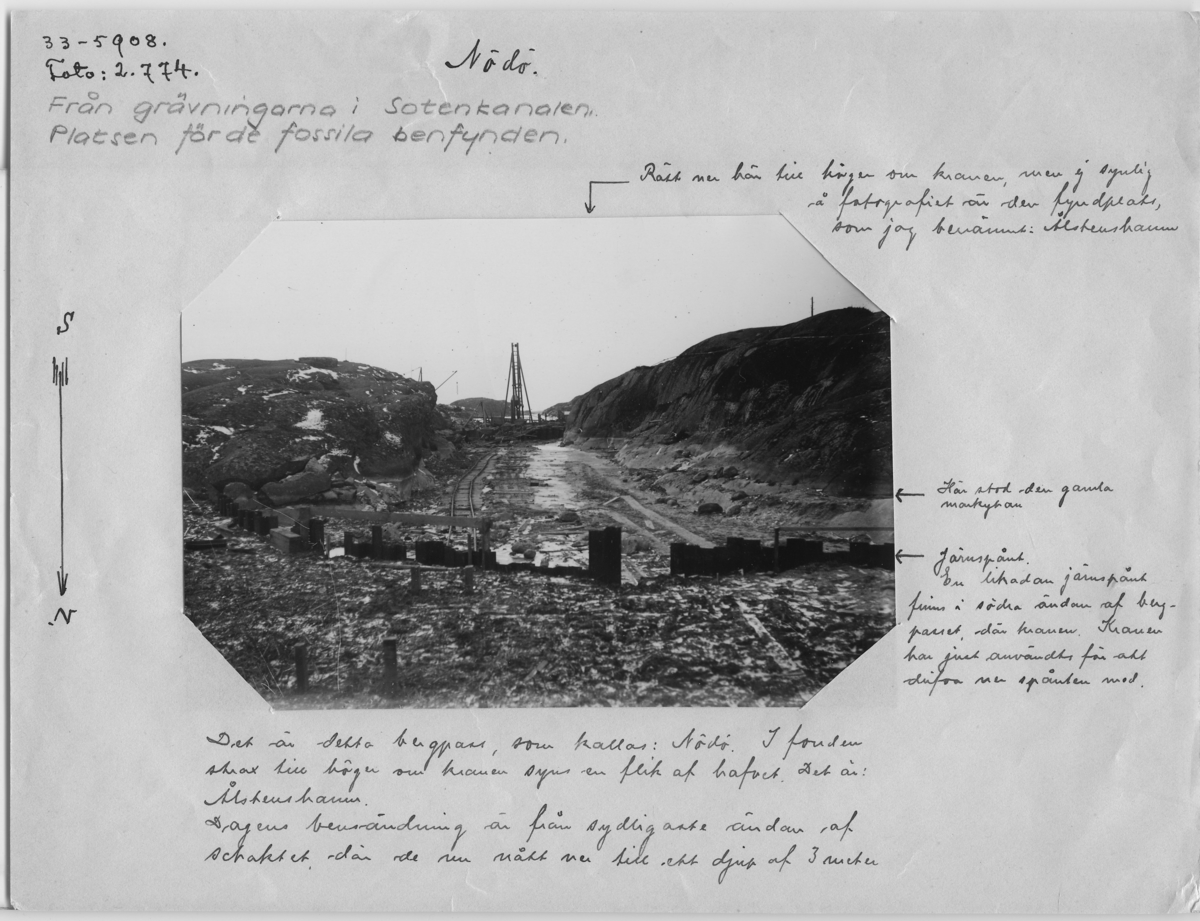 33-5908.
Foto: 2.774.
Nödö.
Från grävningarna i Sotenkanalen.
Platsen för de fossila benfynden.
Rätt ner här till höger om kranen, men ej synlig
å fotografiet är den fyndplats,
som jag benämnt: Ålstenshamn
S
N.
Här stod den gamla
markytan
Järnspånt.
En likadan järnspånt
finns i södra ändan af berg-
passet, där kranen. Kranen
har just användts för att
drifva ner spånten med.
Det är detta bergpass, som kallas: Nödö. I fonden
strax till höger om kranen syns en flik af hafvet. Det är:
Ålstenshamn.
Dagens bensändning är från sydligaste ändan af
schaktet, där de nu nått ner till ett djup af 3 meter